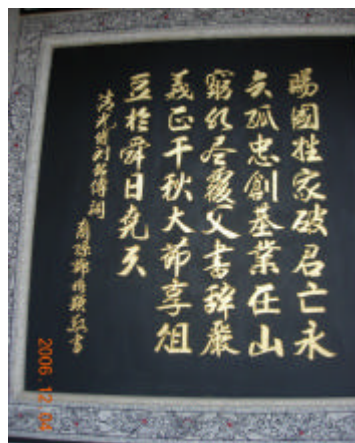 賜國姓家破君亡永
矢孤忠創基業在山
窮水尽覆父書辞嚴
義正千秋大節享俎
豆於舜日堯天
劉銘傳詞
裔孫鄭 敬書
2006.12.04